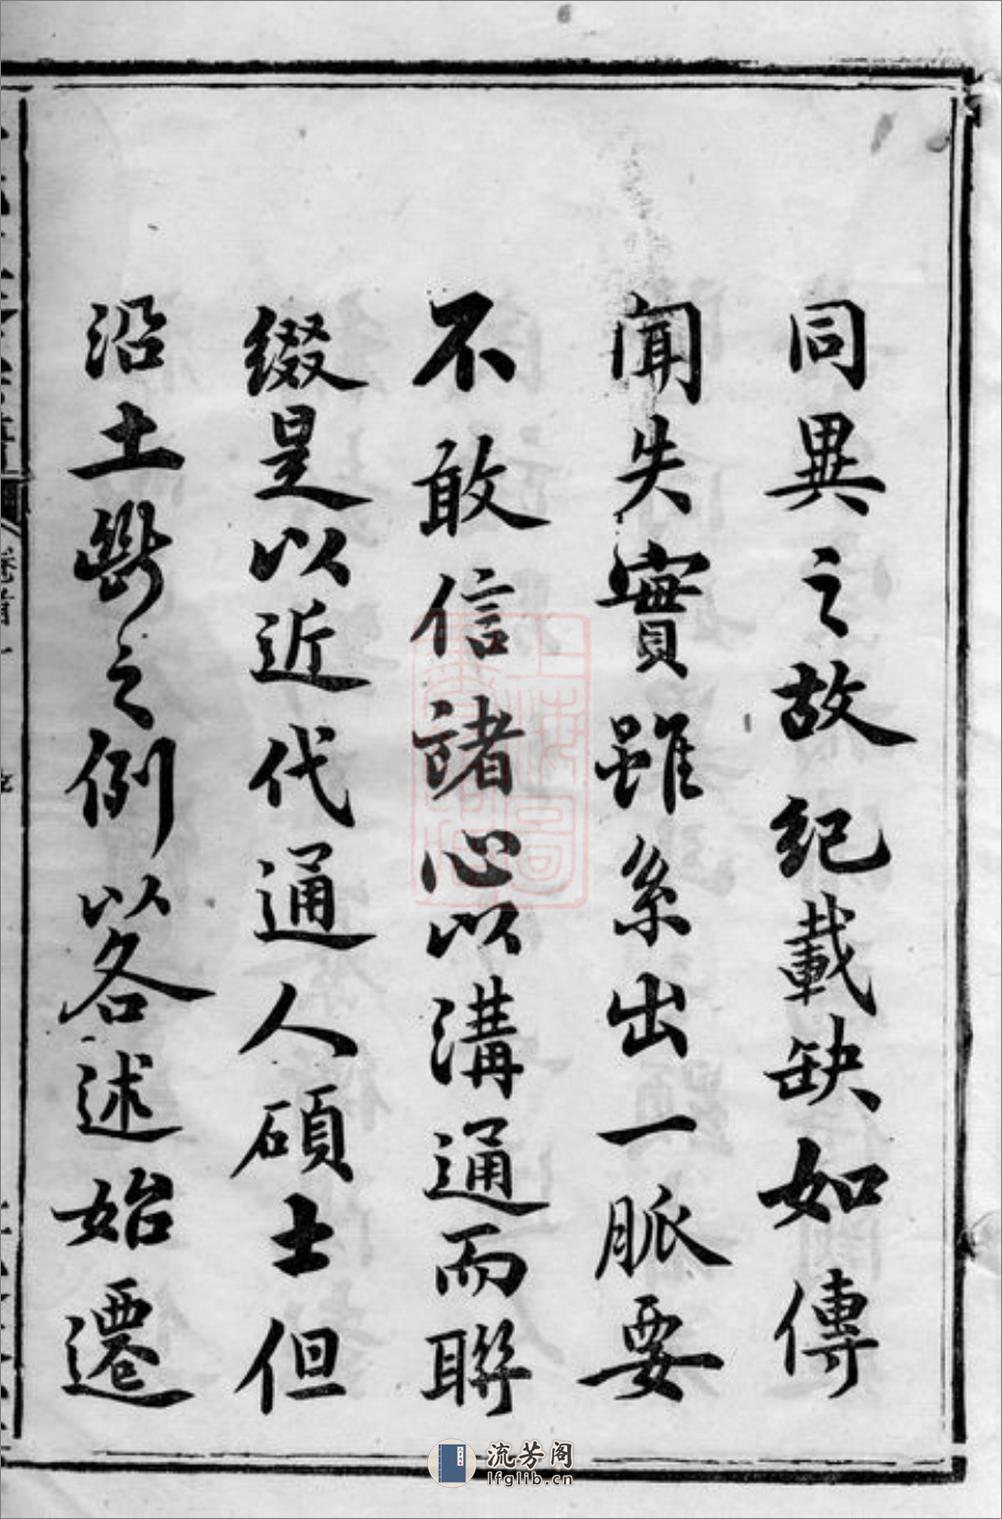 同異之故紀載缺如傳
聞失實雖系出一脈要
不敢信諸心以溝通而聯
綴是以近代通人碩士但
沿土斷之例以各述始遷
卷首
上海圖書館藏
流芳阁
lfglib.cn